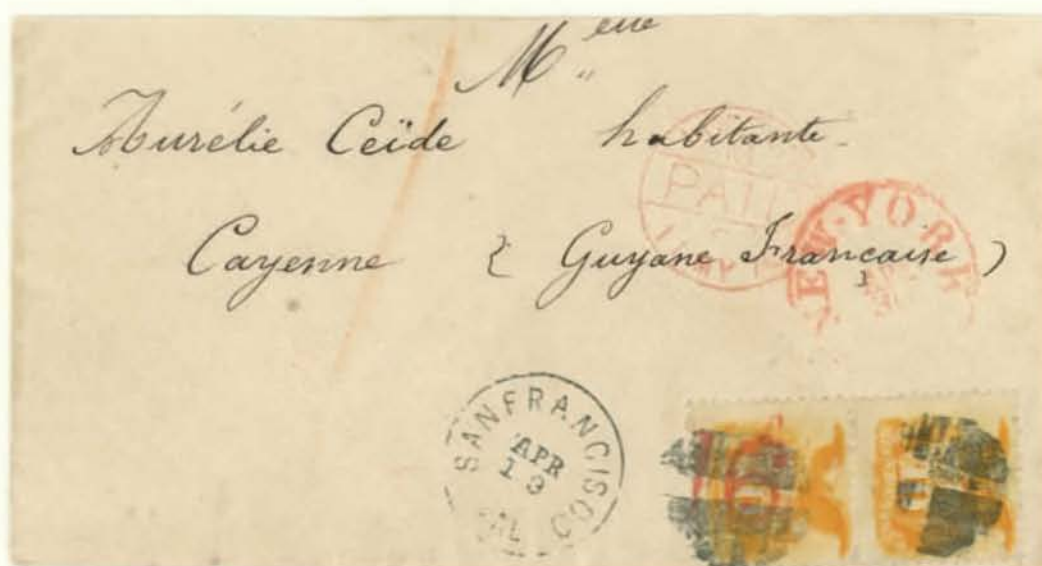 M.elle
Aurélie Ceïde habitante
Cayenne ( Guyane Française )
PAID
NEW-YORK
SAN FRANCISCO
APR
CAL